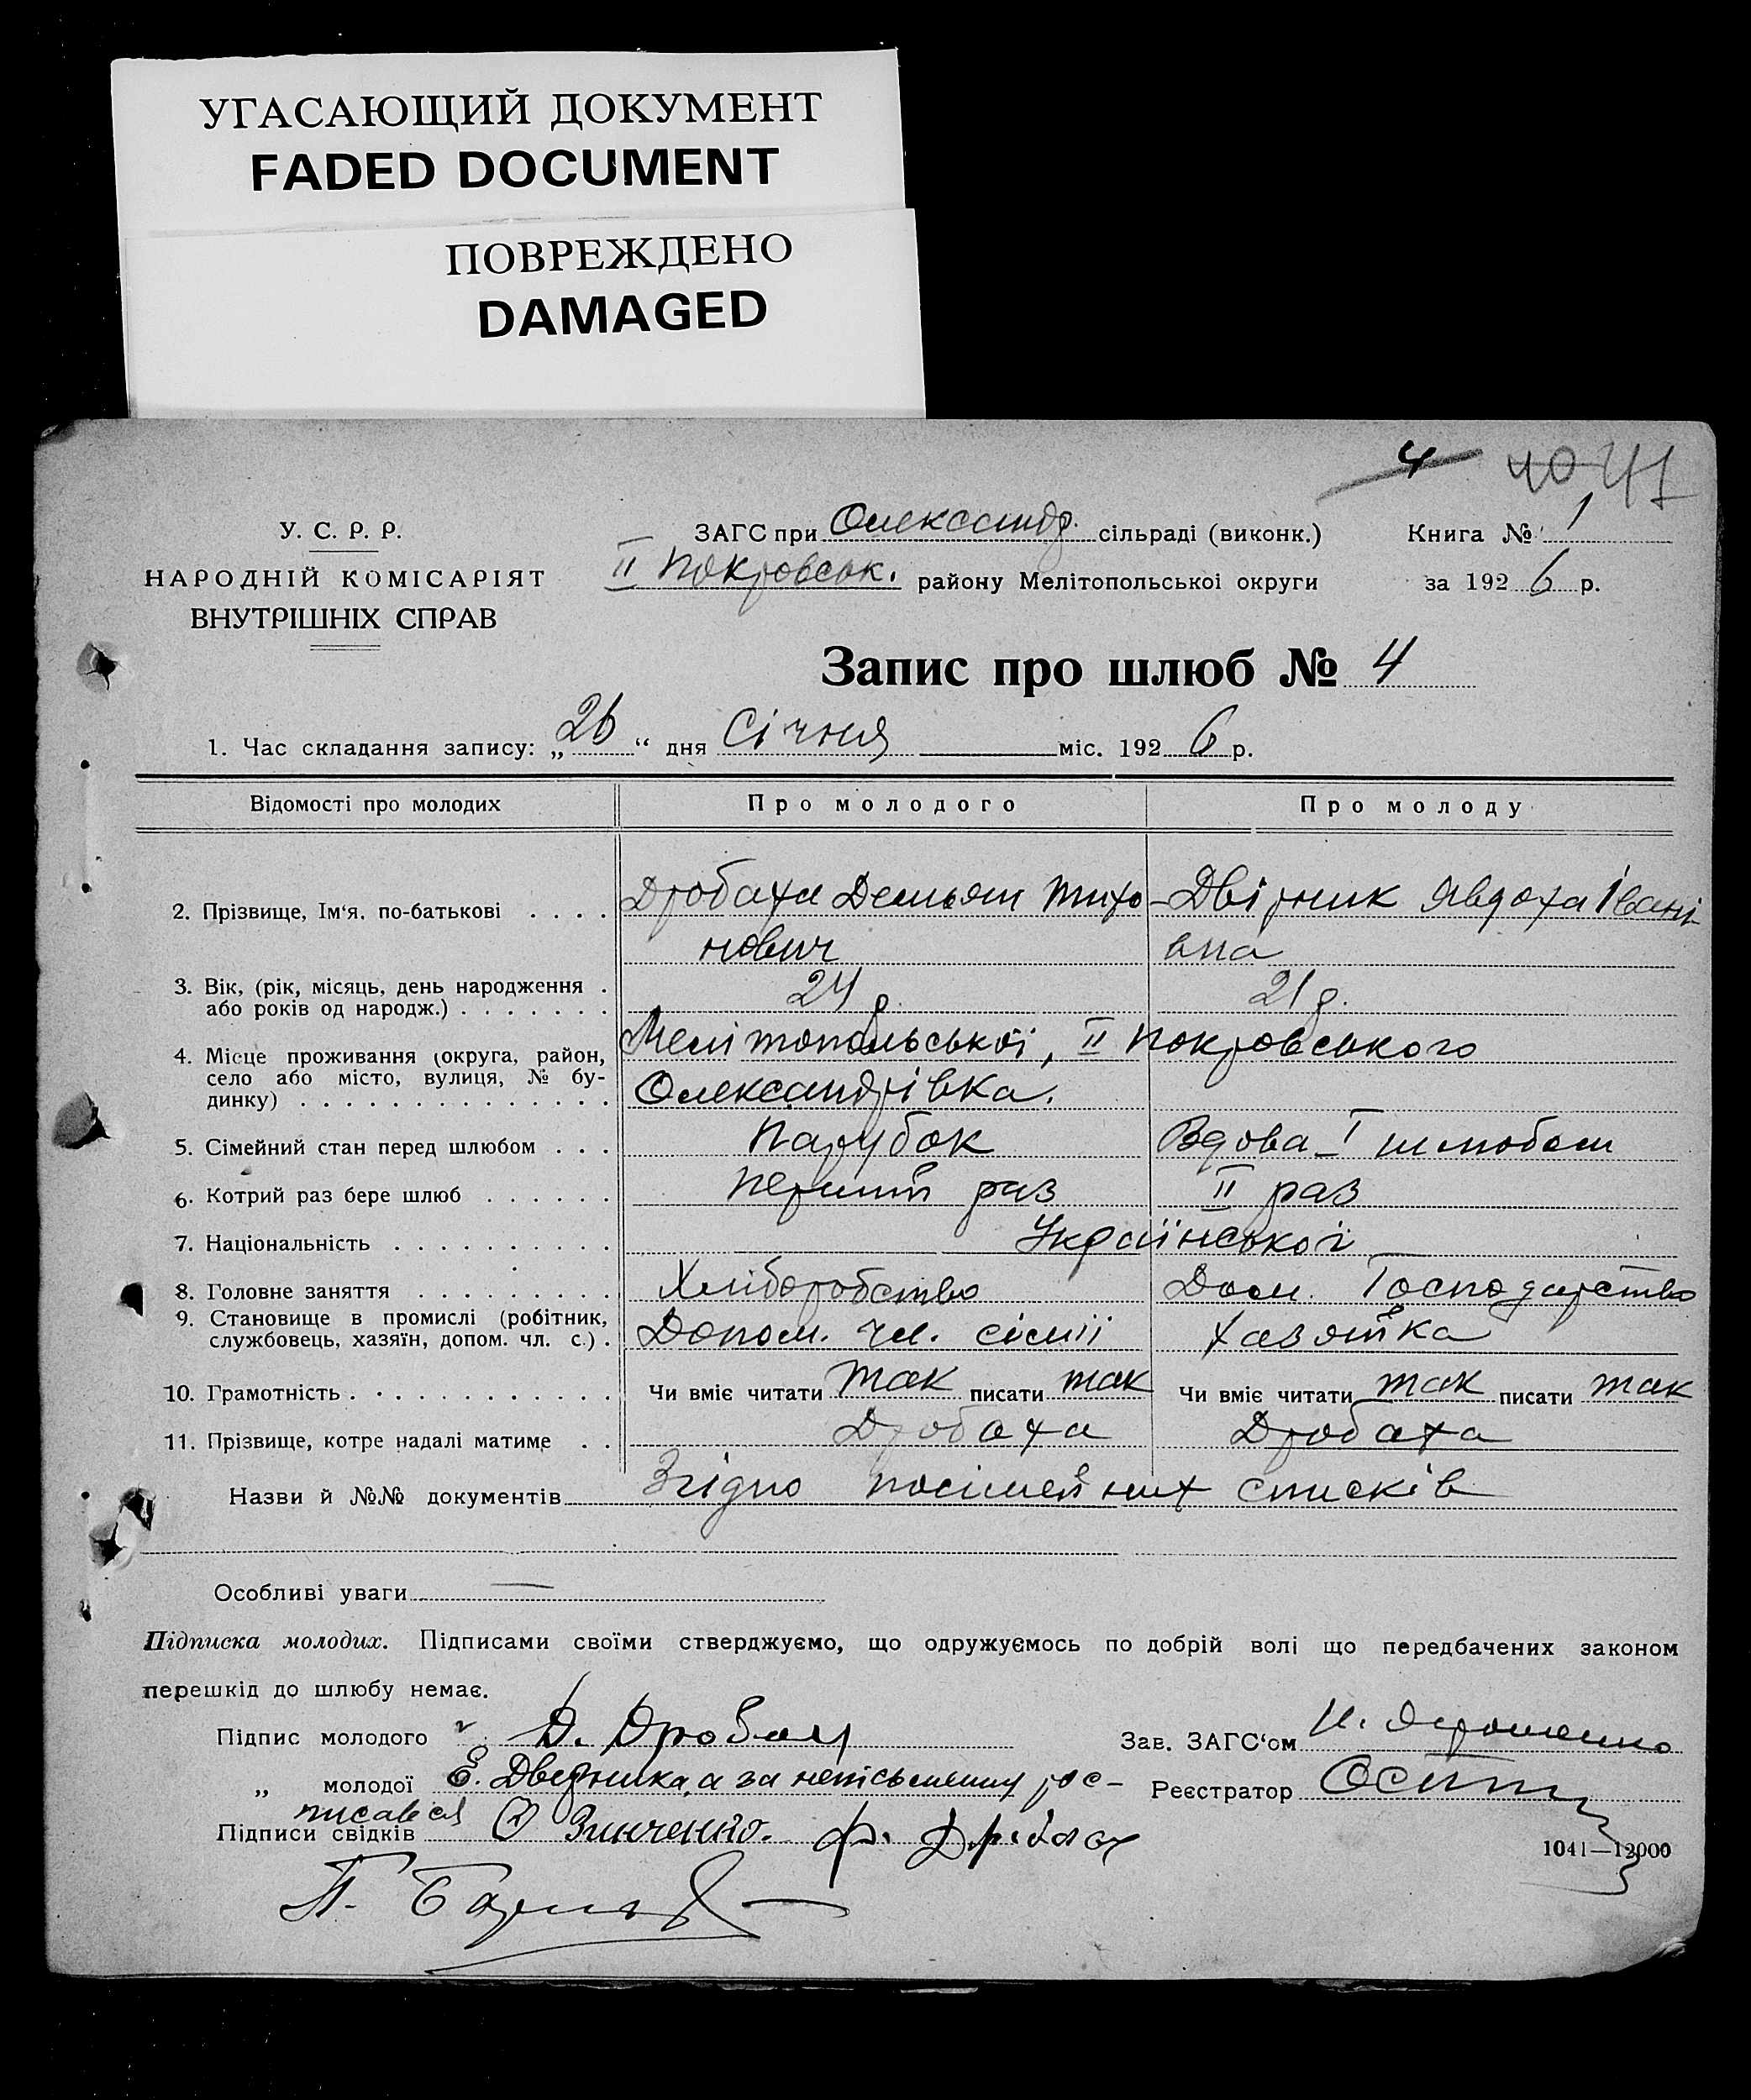 УГАСАЮЩИЙ ДОКУМЕНТ
FADED DOCUMENT
ПОВРЕЖДЕНО
DAMAGED
4 40 41
У. С. Р. Р.
НАРОДНІЙ КОМІСАРІЯТ
ВНУТРІШНІХ СПРАВ
ЗАГС при Олександр. сільраді (виконк.)
Книга № 1
II Покровськ. району Мелітопольської округи
за 1926 р.
Запис про шлюб № 4
1. Час складання запису: „26“ дня Січня міс. 1926 р.
Відомості про молодих Про молодого Про молоду
2. Прізвище, Ім‘я. по-батькові . . . . Дробаха Демьян Тихо- Двірник Явдоха Івані
нович вна
3. Вік, (рік, місяць, день народження . 24 р. 21 р.
або років од народж.) . . . . . . .
4. Місце проживання (округа, район, Мелітопольської, II Покровського
село або місто, вулиця, № бу-
динку) . . . . . . . . . . . . . . Олександрівка.
5. Сімейний стан перед шлюбом . . . Парубок Вдова I шлюбом
6. Котрий раз бере шлюб . . . . . . Перший раз II раз
7. Національність . . . . . . . . . . Української
8. Головне заняття . . . . . . . . . Хліборобство Дом. Господарство
9. Становище в промислі (робітник,
службовець, хазяїн, допом. чл. с.) . Допом. чл. сімії хазяйка
10. Грамотність . . . . . . . . . . . . Чи вміє читати так писати так Чи вміє читати так писати так
11. Прізвище, котре надалі матиме . . Дробаха Дробаха
Назви й №№ документів Згідно посімейних списків
Особливі уваги —
Підписка молодих. Підписами своїми стверджуємо, що одружуємось по добрій волі що передбачених законом
перешкід до шлюбу немає.
Підпис молодого Д. Дробах
Зав. ЗАГС‘ом
„ молодої Е. Дверника, а за неписьменну рос-
Реєстратор
писався
Підписи свідків Зинченко. Ф.
1041—12000
П.